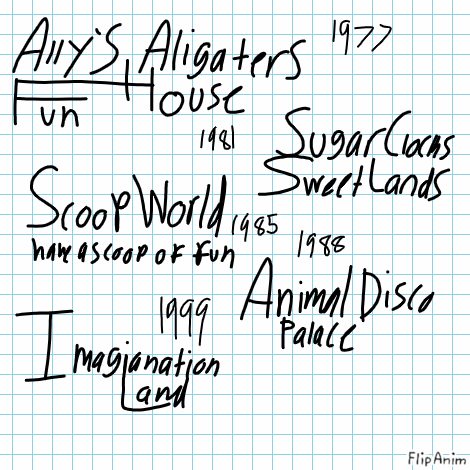 Ally's Aligaters
1977
Fun House
1981
SugarClowns
SweetLands
ScoopWorld
1985
have a scoop of fun
1988
Animal Disco
Palace
1999
Imagianation
Land
FlipAnim